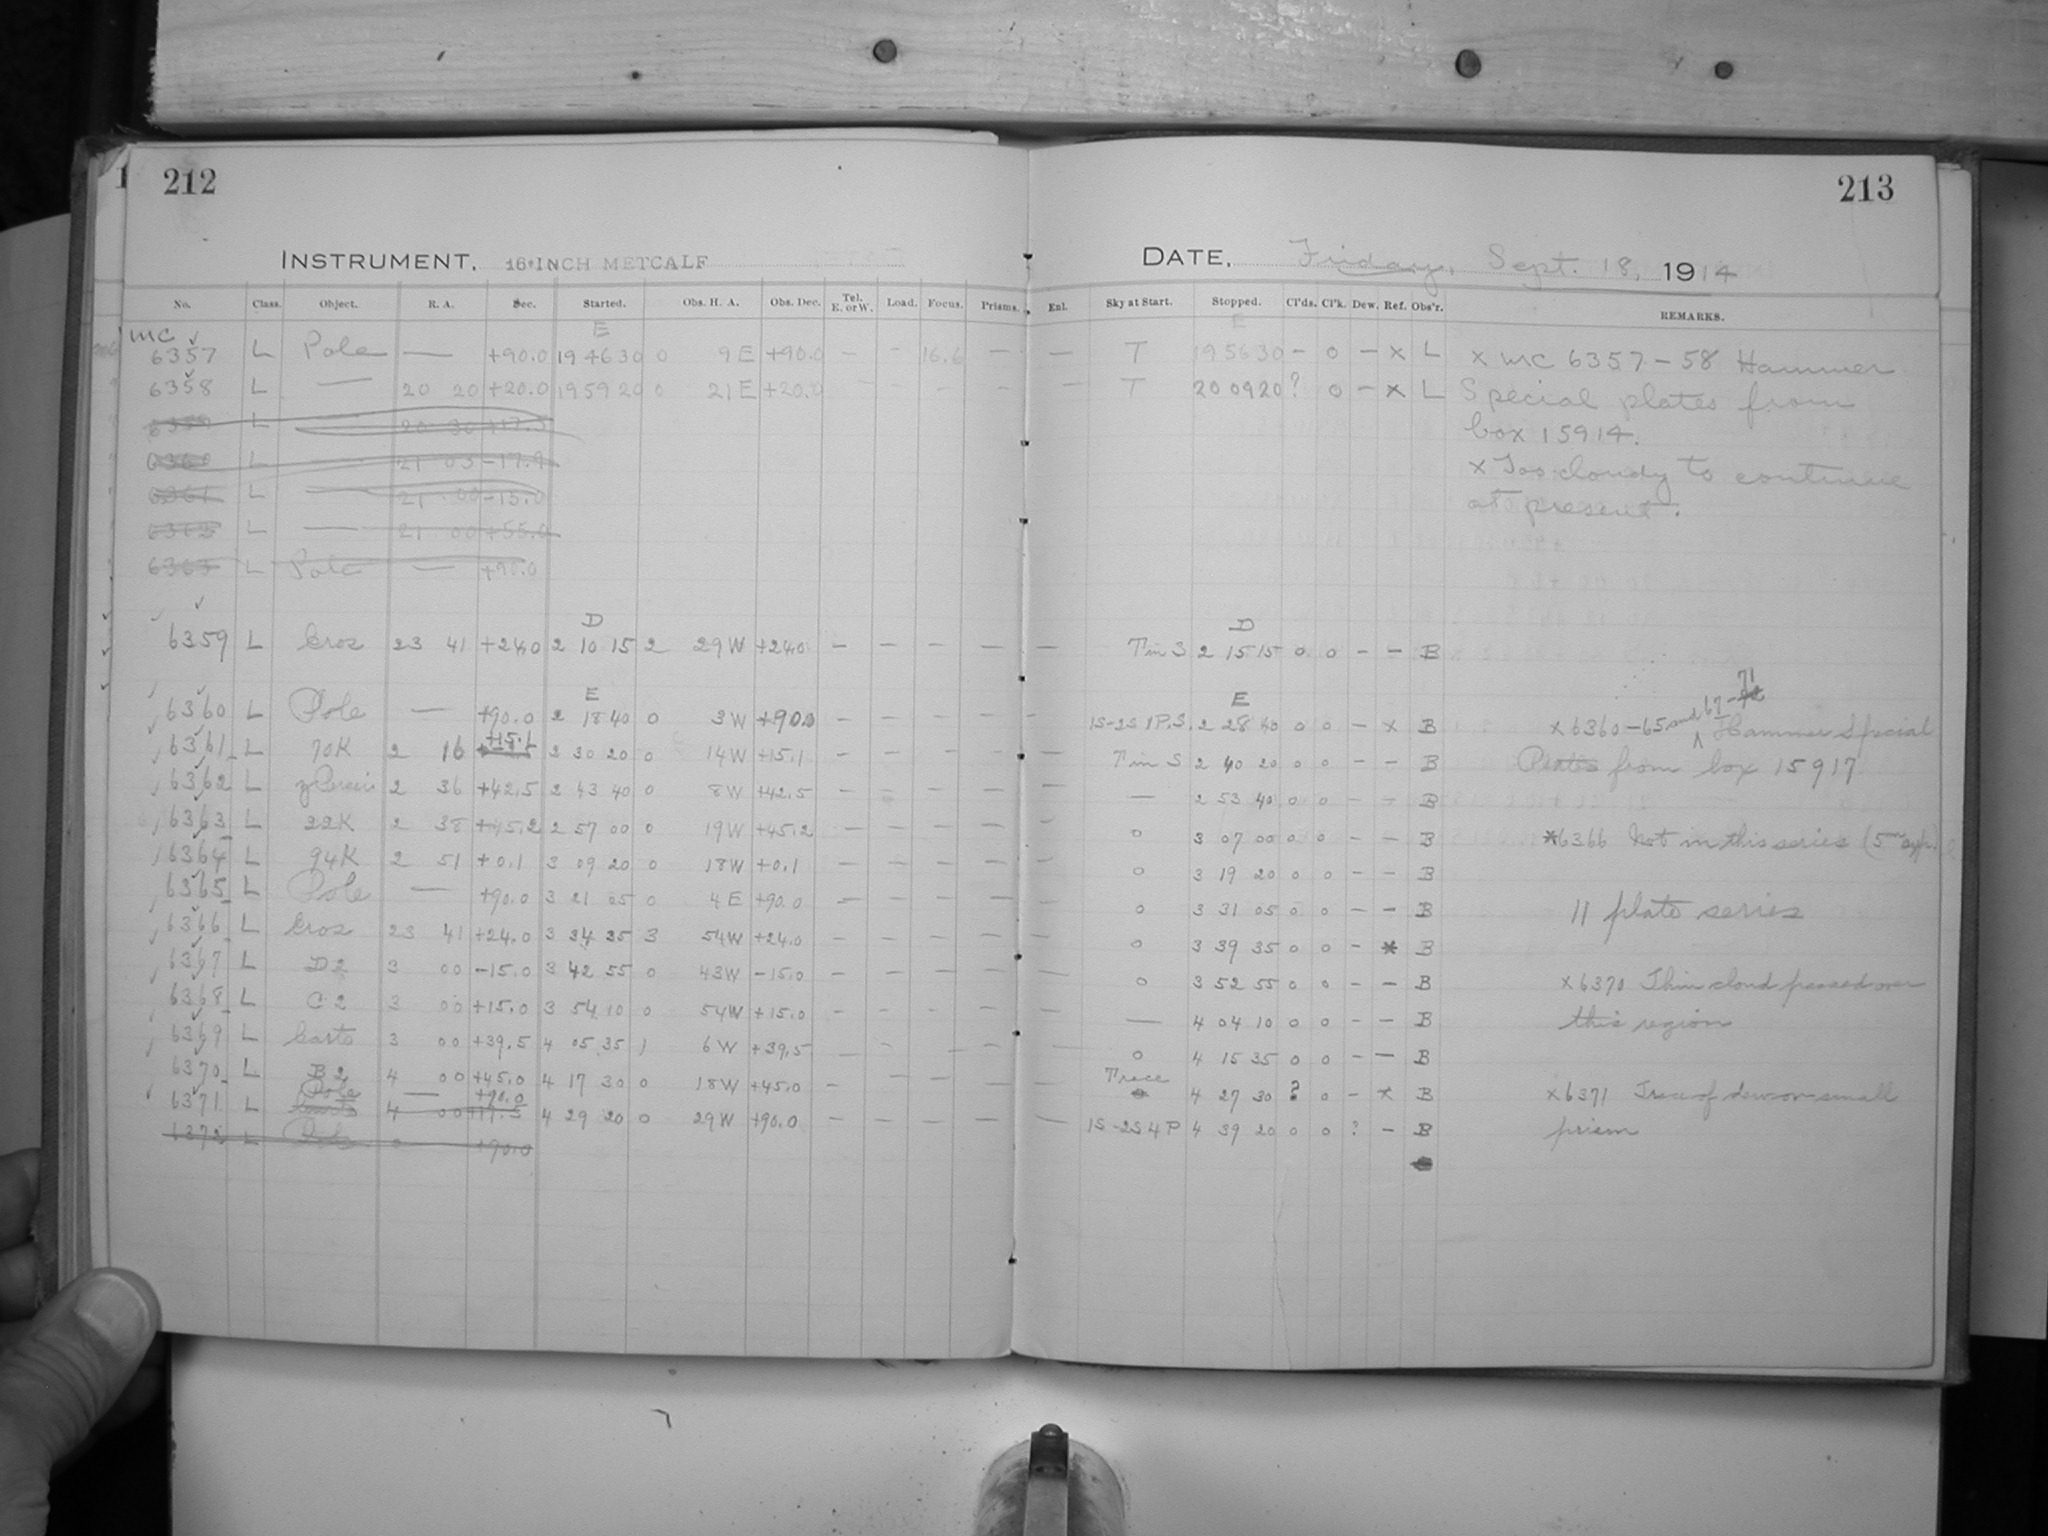 1 212
213
INSTRUMENT, 16-INCH METCALF
DATE, Friday, Sept. 18, 1914
No. Class. Object. R. A. Dec. Started. Obs. H. A. Obs. Dec. Tel. E. or W. Load. Focus. Prisms.
Enl. Sky at Start. Stopped. Cl'ds. Cl'k. Dew. Ref. Obs'r. REMARKS.
MC E E
6357 L Pole — +90.0 19 46 30 0 9 E +90.0 – – 16.6 — — T 19 56 30 – 0 – x L x MC 6357-58 Hammer
6358 L — 20 20 +20.0 19 59 20 0 21 E +20.0 — – – — — T 20 09 20 ? 0 – x L Special plates from
6359 L — 20 30 +17.5 box 15914.
6360 L — 21 03 -17.9 x Too cloudy to continue
6361 L — 21 00 -15.0 at present.
6362 L — 21 00 +55.0
6363 L Pole — +90.0
D D
6359 L Eros 23 41 +24.0 2 10 15 2 29 W +24.0 – – – – — T in S 2 15 15 0 0 – – B
E E 71
6360 L Pole — +90.0 2 18 40 0 3 W +90.0 – – – – — 1S-2S 1P.S. 2 28 40 0 0 – x B x6360-65 and 67- Hammer Special
6361 L 70K 2 16 +15.1 2 30 20 0 14 W +15.1 – – – – — T in S 2 40 20 0 0 – – B Plates from box 15917
6362 L 2 36 +42.5 2 43 40 0 8 W +42.5 – – – – — — 2 53 40 0 0 – – B
6363 L 22K 2 38 +45.2 2 57 00 0 19 W +45.2 – – – – — 0 3 07 00 0 0 – – B *6366 Not in this series (5m exp.)
6364 L 94K 2 51 +0.1 3 09 20 0 18 W +0.1 – – – – — 0 3 19 20 0 0 – – B
6365 L Pole — +90.0 3 21 05 0 4 E +90.0 – – – – — 0 3 31 05 0 0 – – B 11 plate series
6366 L Eros 23 41 +24.0 3 34 35 3 54 W +24.0 – – – – — 0 3 39 35 0 0 – * B
6367 L D2 3 00 -15.0 3 42 55 0 43 W -15.0 – – – – — 0 3 52 55 0 0 – – B x6370 Thin cloud passed over
6368 L C2 3 00 +15.0 3 54 10 0 54 W +15.0 – – – – — — 4 04 10 0 0 – – B this region
6369 L 3 00 +39.5 4 05 35 1 6 W +39.5 – – – – — 0 4 15 35 0 0 – – B
6370 L B2 4 00 +45.0 4 17 30 0 18 W +45.0 – – – – — Trace 4 27 30 ? 0 – x B x6371 Trace of dew on small
6371 L Pole — +90.0 4 00 +17.5 4 29 20 0 29 W +90.0 – – – – — 1S-2S 4P 4 39 20 0 0 ? – B prism
6372 L Pole +90.0